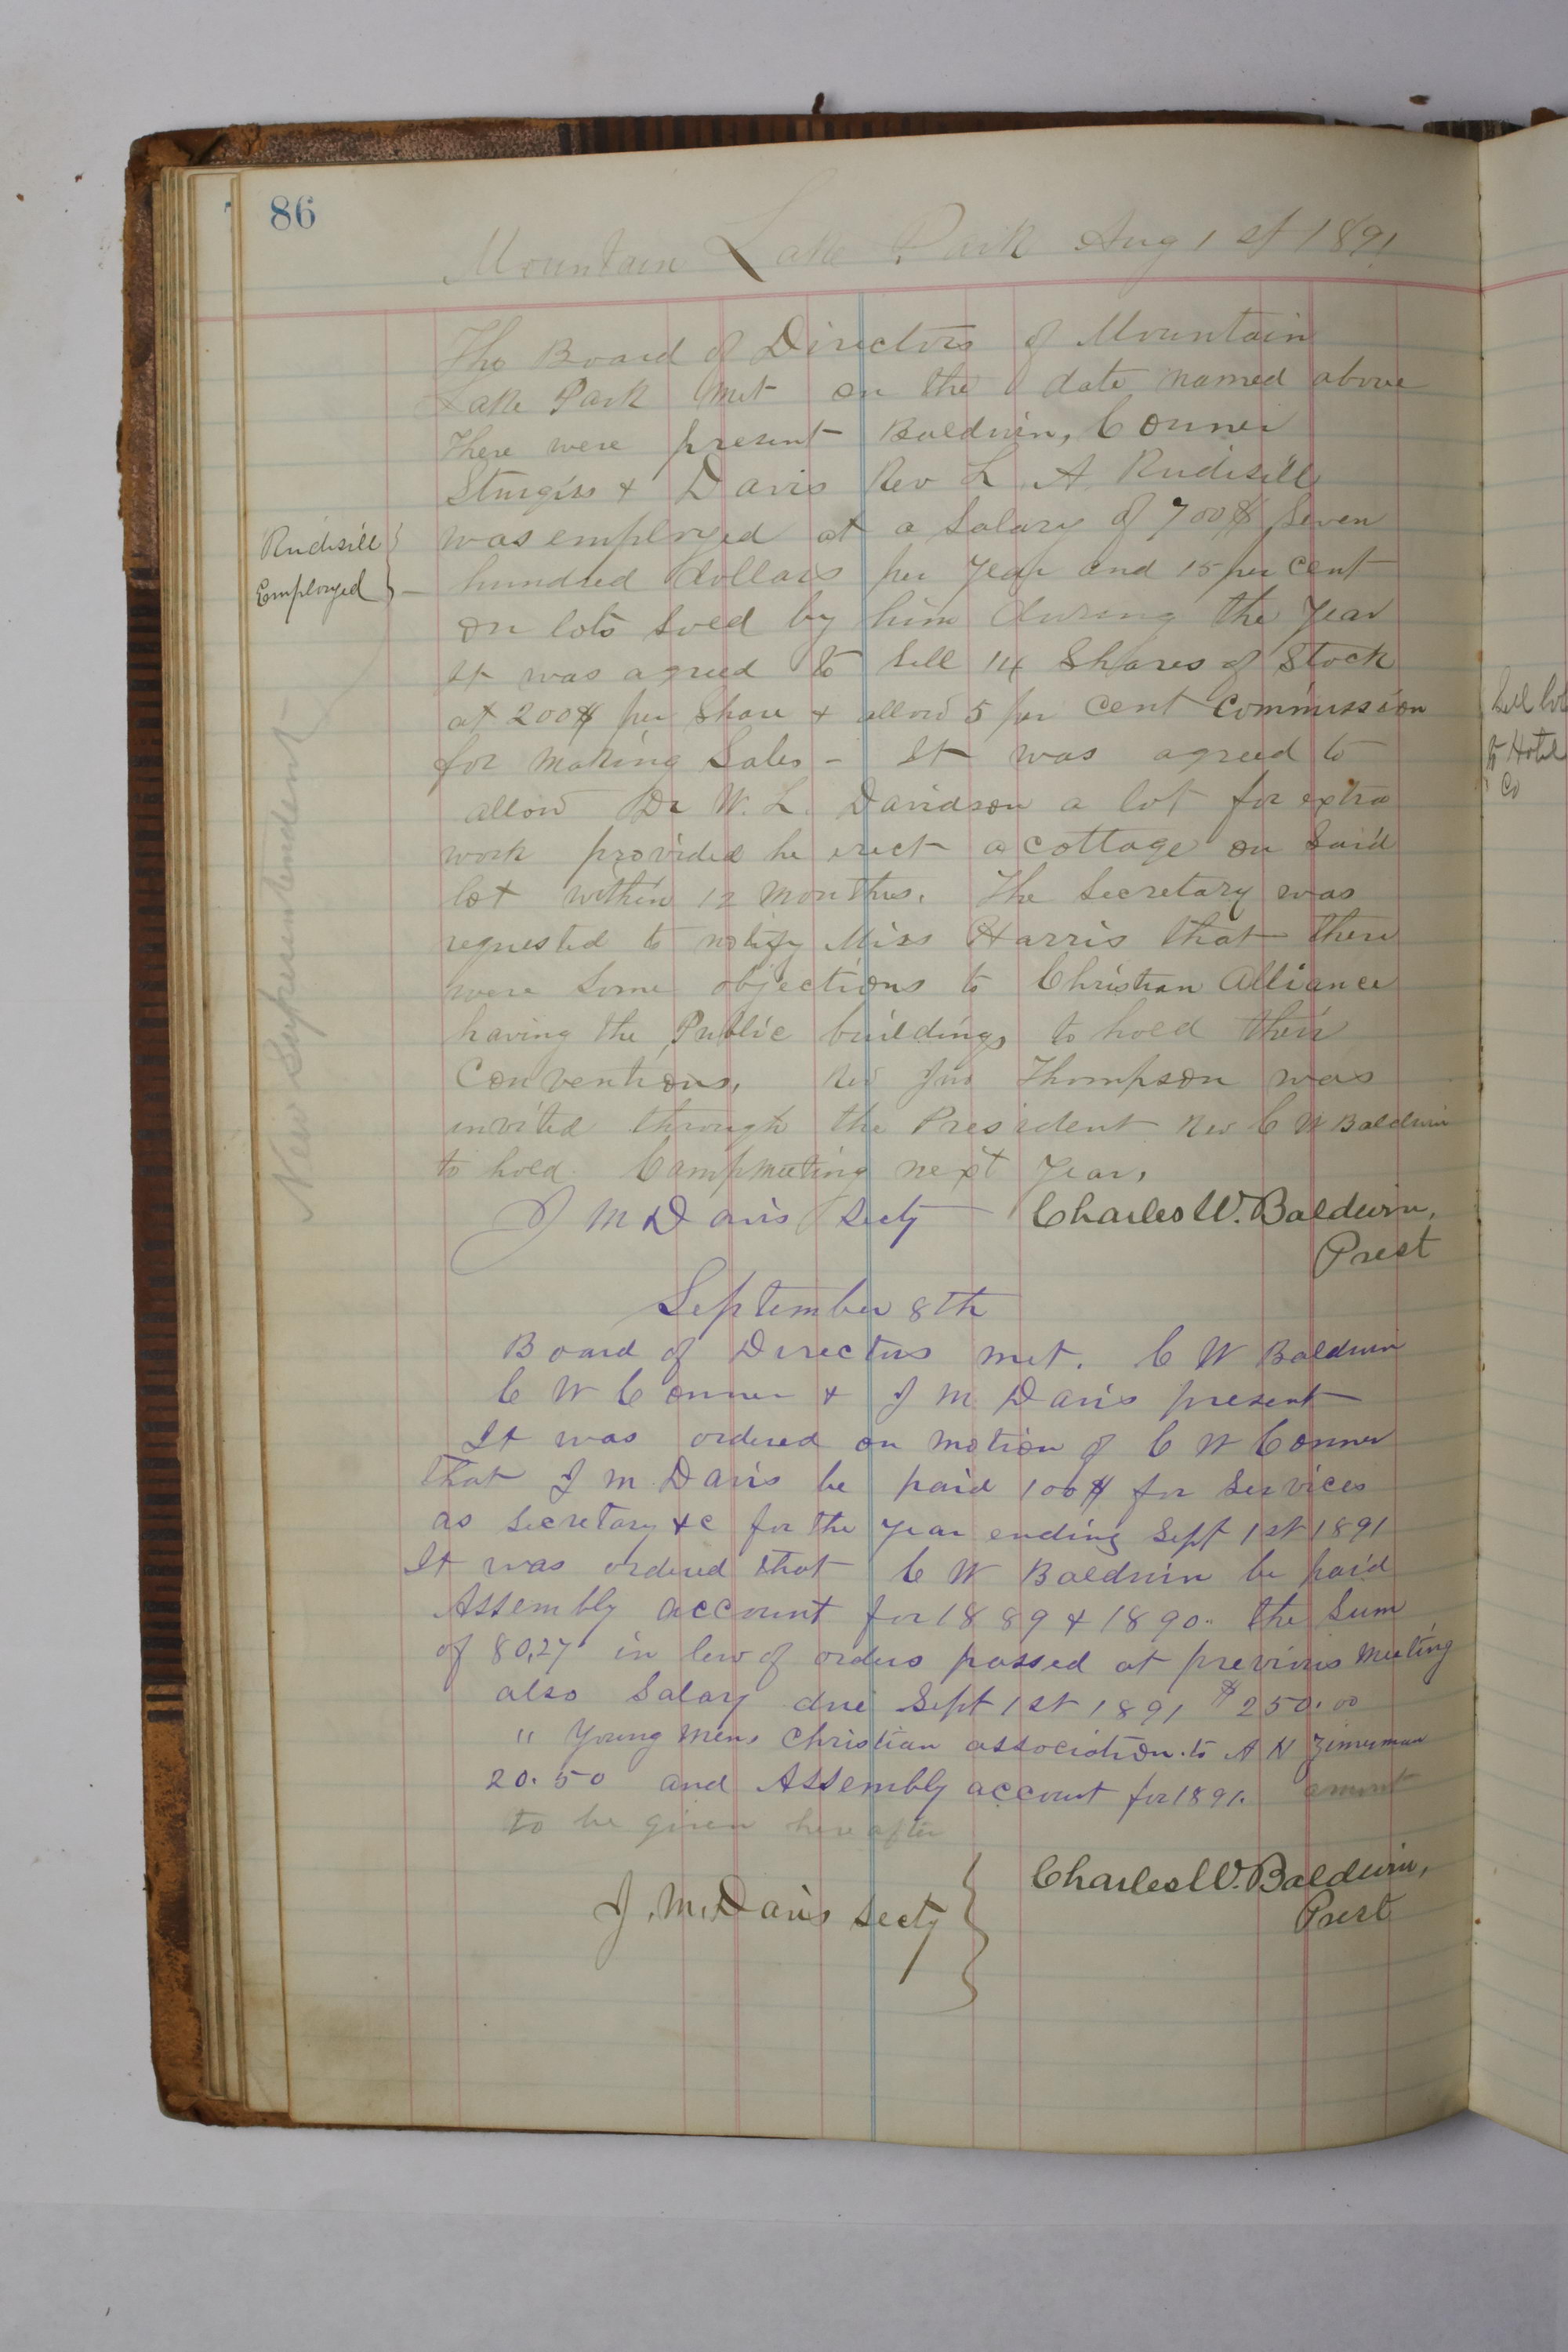 86
Mountain Lake Park Aug 1 st 1891
The Board of Directors of Mountain
Lake Park met on the date named above
There were present Baldwin, Conner
Sturgiss & Davis Rev L. A. Rudisill
was employed at a Salary of 700$ Seven
hundred dollars per Year and 15 per cent
on lots sold by him during the Year
It was agreed to sell 14 Shares of Stock
at 200$ per Share & allow 5 per cent Commission
for making Sales - It was agreed to
allow Dr W. L. Davidson a lot for extra
work provided he erect a cottage on said
lot within 12 months. The Secretary was
requested to notify Miss Harris that there
were some objections to Christian Alliance
having the Public buildings to hold their
Conventions, Rev Jno Thompson was
invited through the President Rev C W Baldwin
to hold Campmeeting next Year,
J M Davis Secty Charles W. Baldwin,
Prest
Rudisill
Employed
New Superintendent
September 8th
Board of Directors met. C W Baldwin
C W Conner & J M Davis present
It was ordered on motion of C W Conner
that J M Davis be paid 100$ for services
as Secretary &c for the Year ending Sept 1st 1891
It was ordered that C W Baldwin be paid
Assembly account for 1889 & 1890. the Sum
of 80,27 in lew of orders passed at previous meeting
also Salary due Sept 1st 1891 $250.00
" Young Mens Christian association. to A N Zimerman
20.50 and Assembly account for 1891. amount
to be given here after
J. M. Davis Secty Charles W. Baldwin,
Prest
Sell lot
to Hotel
Co